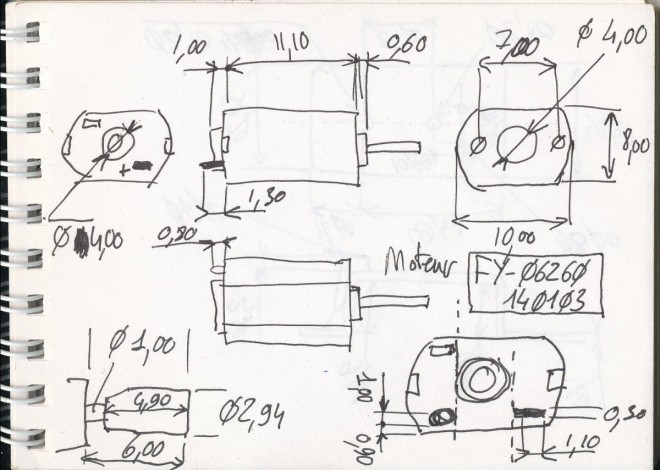 1,00
11,10
0,60
7,00
Ø 4,00
8,00
+
Ø 4,00
1,30
10,00
0,80
Moteur
FY-Ø626Ø
14Ø1Ø3
Ø 1,00
4,90
6,00
Ø2,94
1,00
0,90
0,30
1,10